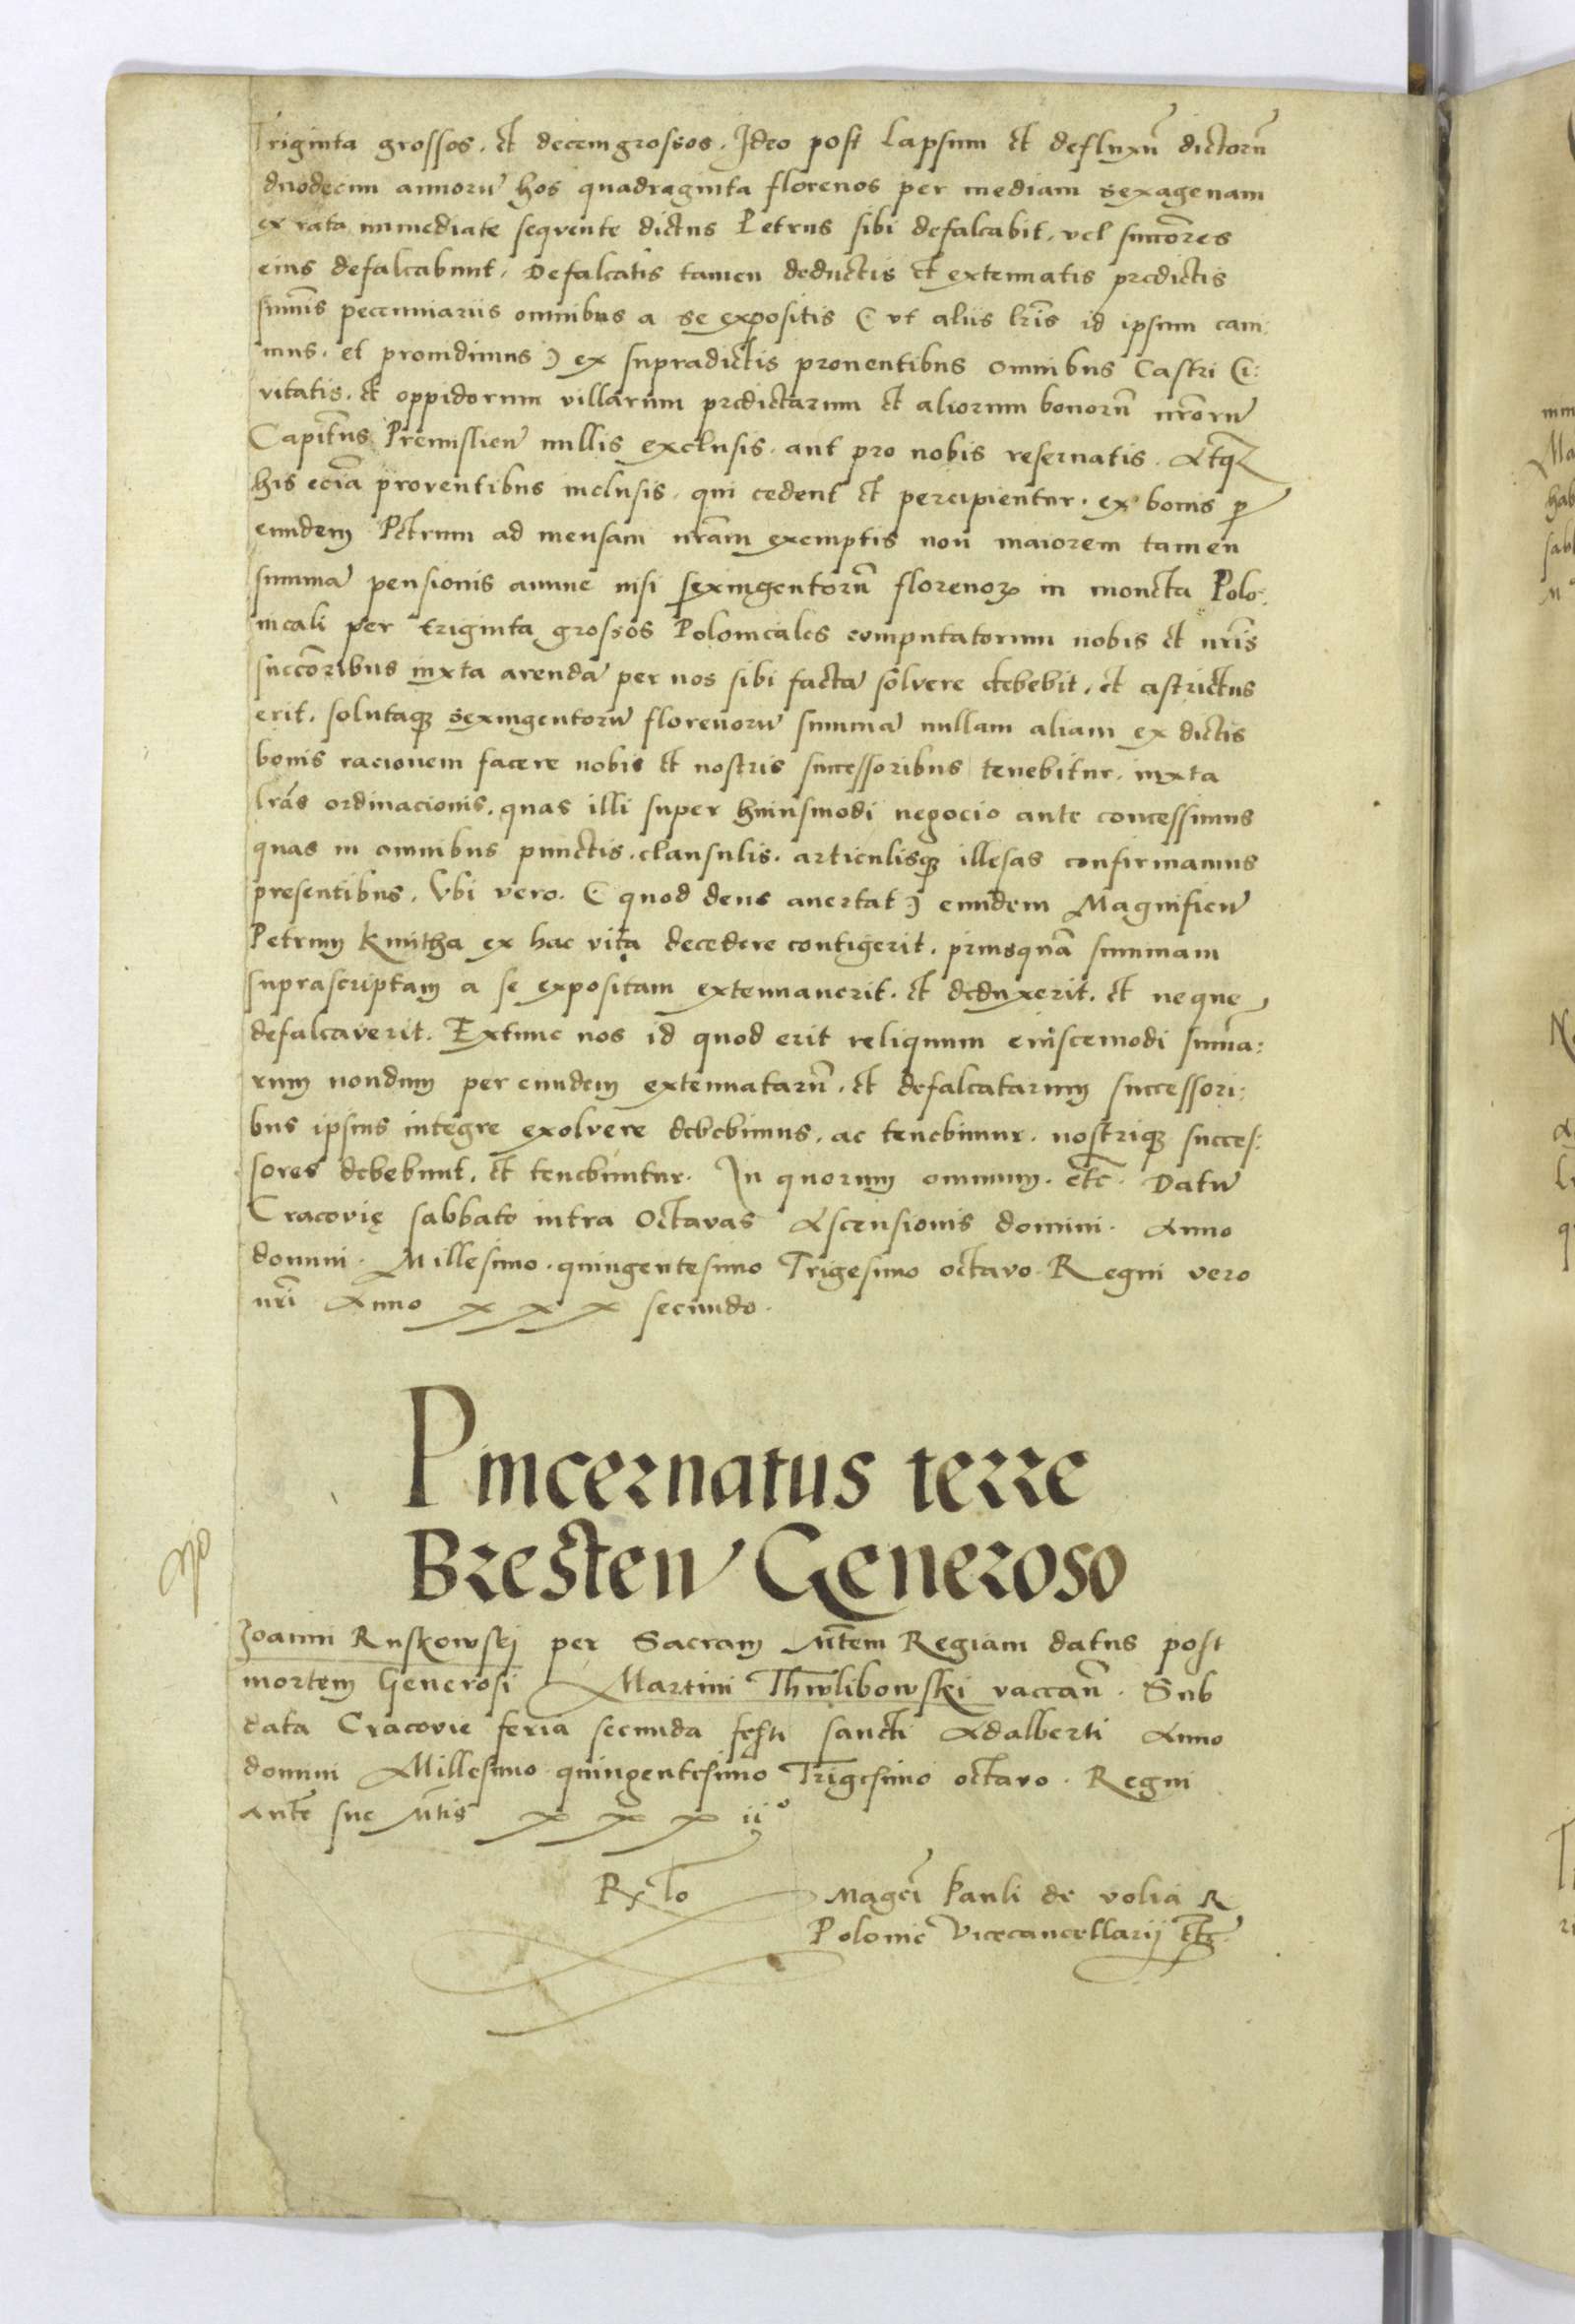 Triginta grossos. et decem grossos. Ideo post lapsum et defluxũ dictorũ
duodecim annorũ hos quadraginta florenos per mediam sexagenam
ex rata immediate seqvente dictus Petrus sibi defalcabit. vel succores
eius defalcabunt. Defalcatis tamen deductis et extenuatis predictis
summis pecuniariis omnibus a se expositis ( vt aliis lr̃is id ipsum caui:
mus. et prouidimus ) ex supradictis prouentibus omnibus Castri Ci:
vitatis. et oppidorum villarum predictarum et aliorum bonorũ nr̃orũ
Capitñus Premislieñ nullis exclusis. aut pro nobis reseruatis. Atq₃
his eciã proventibus inclusis. qui cedent et percipientur. ex bonis p̱
eundem Petrum ad mensam nr̃am exemptis non maiorem tamen
summã pensionis annue nisi sexingentorũ florenoꝝ in moneta Polo:
nicali per triginta grossos Polonicales computatorum nobis et nr̃is
succõribus iuxta arendã per nos sibi factã solvere debebit. et astrictus
erit. solutaq₃ sexingentorũ florenorũ summã nullam aliam ex dictis
bonis racionem facere nobis et nostris successoribus tenebitur. iuxta
lr̃as ordinacionis. quas illi super huiusmodi negocio ante concessimus
quas in omnibus punctis. clausulis. articulisq₃ illesas confirmamus
presentibus. Vbi vero. ( quod deus auertat ) eundem Magnificũ
Petrum Kmitha ex hac vita decedere contigerit. priusquã summam
suprascriptam a se expositam extenuauerit. et deduxerit. et neque
defalcaverit. Extunc nos id quod erit reliquum eiuscemodi summa:
rum nondum per eundem extenuatarũ. et defalcatarum successori:
bus ipsius integre exolvere debebimus. ac tenebimur. nostriq₃ succes:
sores debebunt. et tenebuntur. In quorum omnium. etc̃. Datũ
Cracovię sabbato intra Octavas Ascensionis domini. Anno
domini. Millesimo. quingentesimo Trigesimo octavo. Regni vero
nr̃i Anno x x x secundo.
Pincernatus terre
Bresteñ Generoso
Joanni Ruskowskj per Sacram Mtem Regiam datus post
mortem Generosi Martini Thwlibowski vaccañ. Sub
data Cracovie feria secunda festi sancti Adalberti Anno
domini Millesimo quingentesimo Trigesimo octavo. Regni
Ante sue Mtis x x x ii°
Rx̃ło Magcĩ Pauli de volia R
Polonie Vicecancellarij etc̃.